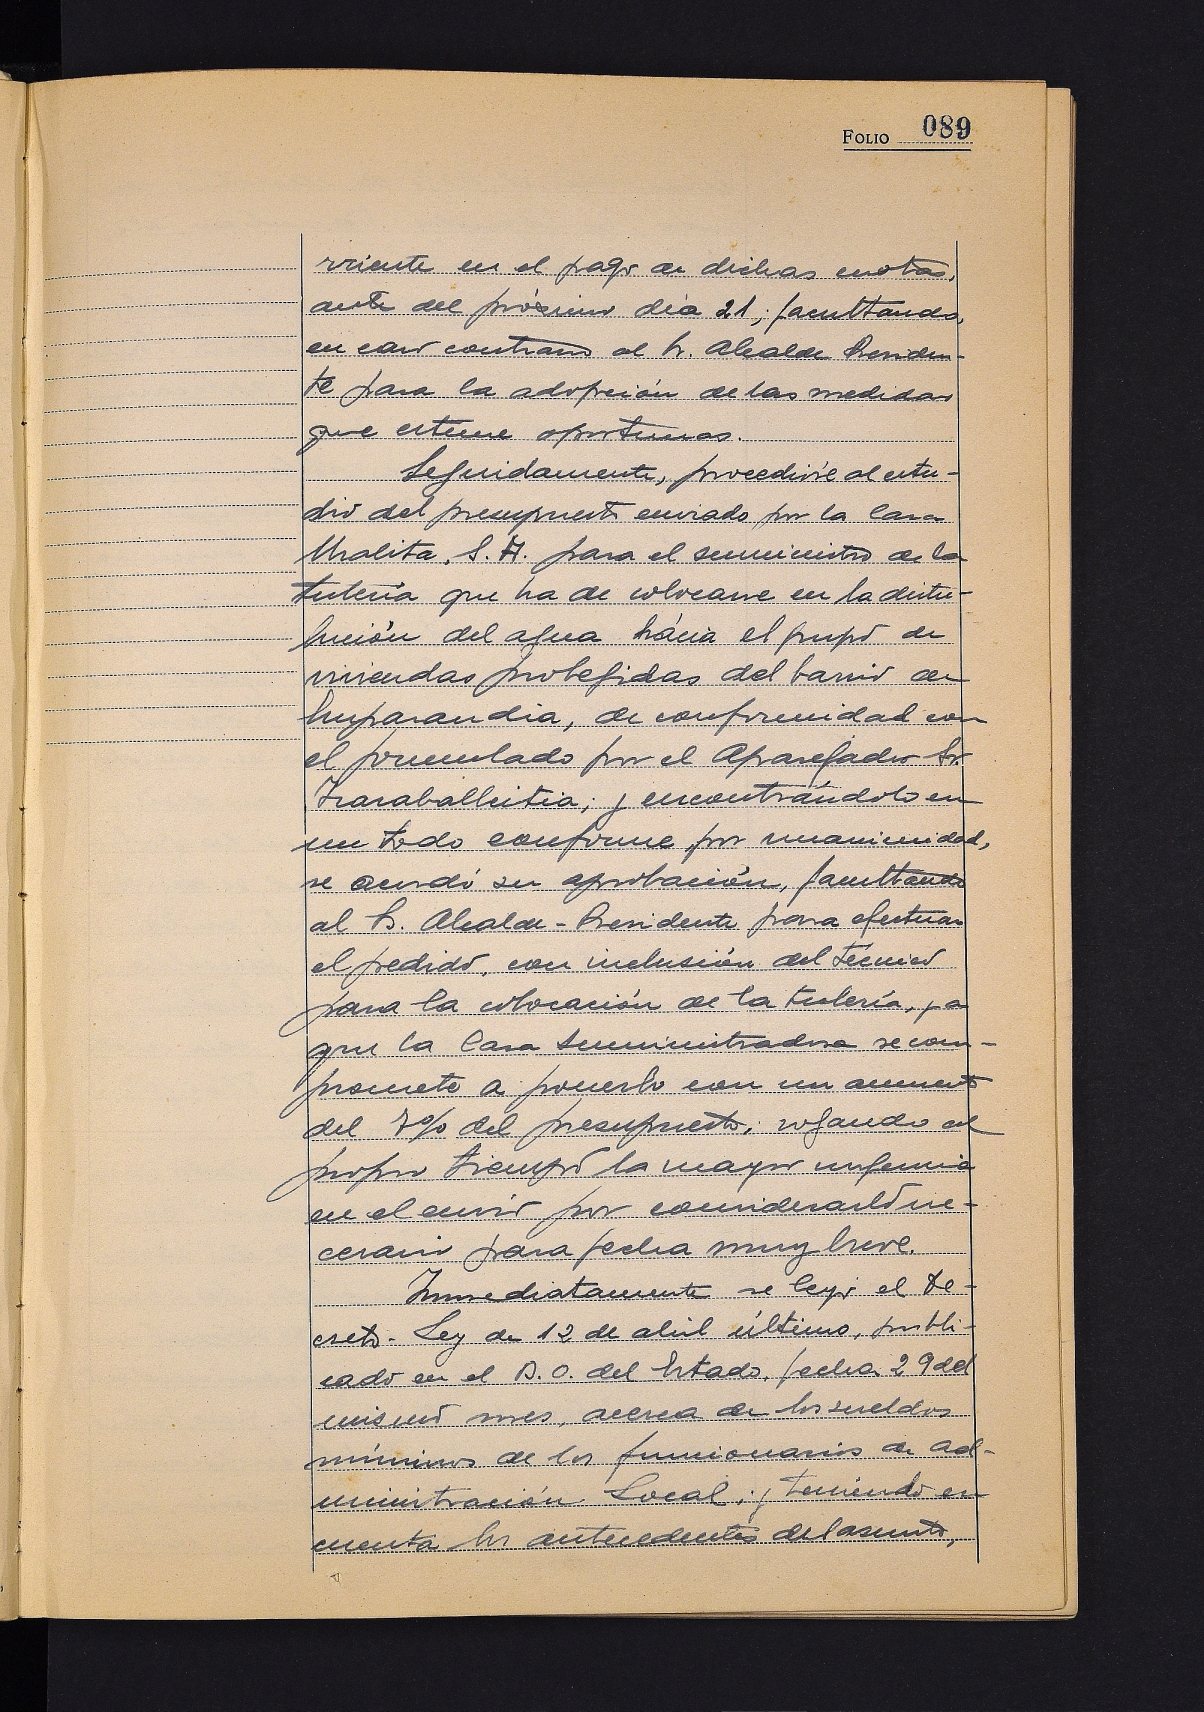 FOLIO 089
rriente en el pago de dichas cuotas,
ante del próximo día 21; facultando,
en caso contrario al Sr. Alcalde Presiden-
te para la adopción de las medidas
que estime oportunas.
Seguidamente, procedióse al estu-
dio del presupuesto enviado por la Casa
Uralita, S.A. para el suministro de la
tubería que ha de colocarse en la distri-
bución del agua hácia el grupo de
viviendas protegidas del barrio de
Inparandia, de conformidad con
el formulado por el Aparejador Sr.
Izaraballeitia; y encontrándolo en
un todo conforme, por unanimidad,
se acordó su aprobación, facultando
al Sr. Alcalde-Presidente para efectuar
el pedido, con inclusión del técnico
para la colocación de la tubería, ya
que la Casa Suministradora se com-
promete a ponerlo con un aumento
del 7% del presupuesto; rogando al
propio tiempo la mayor urgencia
en el envío por considerarlo ne-
cesario para fecha muy breve.
Inmediatamente se leyó el De-
creto-Ley de 12 de abril último, publi-
cado en el B.O. del Estado, fecha 29 del
mismo mes, acerca de los sueldos
mínimos de los funcionarios de Ad-
ministración Local; y teniendo en
cuenta los antecedentes del asunto,